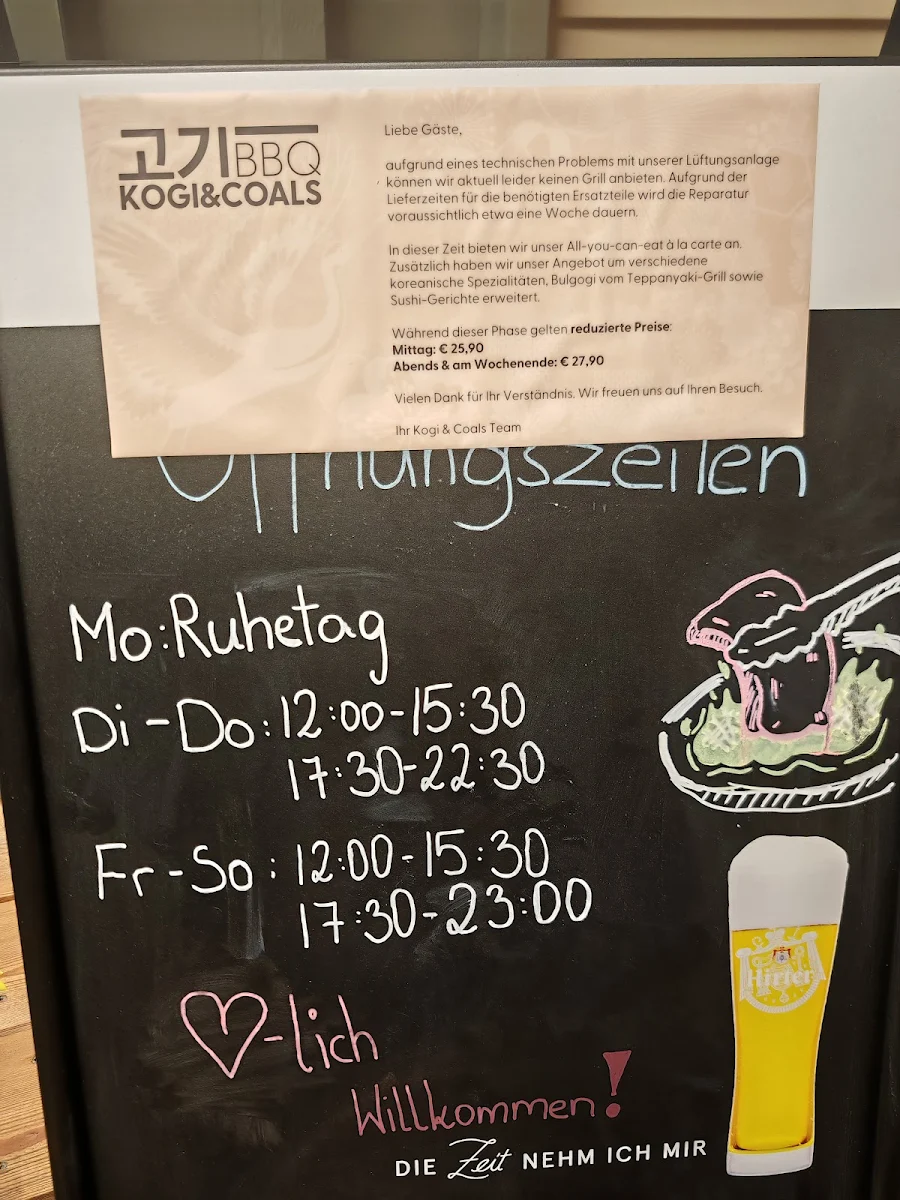 고기BBQ
KOGI&COALS
Liebe Gäste,
aufgrund eines technischen Problems mit unserer Lüftungsanlage
können wir aktuell leider keinen Grill anbieten. Aufgrund der
Lieferzeiten für die benötigten Ersatzteile wird die Reparatur
voraussichtlich etwa eine Woche dauern.
In dieser Zeit bieten wir unser All-you-can-eat à la carte an.
Zusätzlich haben wir unser Angebot um verschiedene
koreanische Spezialitäten, Bulgogi vom Teppanyaki-Grill sowie
Sushi-Gerichte erweitert.
Während dieser Phase gelten reduzierte Preise:
Mittag: € 25,90
Abends & am Wochenende: € 27,90
Vielen Dank für Ihr Verständnis. Wir freuen uns auf Ihren Besuch.
Ihr Kogi & Coals Team
Öffnungszeiten
Mo: Ruhetag
Di-Do: 12:00-15:30
17:30-22:30
Fr-So: 12:00-15:30
17:30-23:00
♡-lich
Willkommen!
Hirter
DIE Zeit NEHM ICH MIR